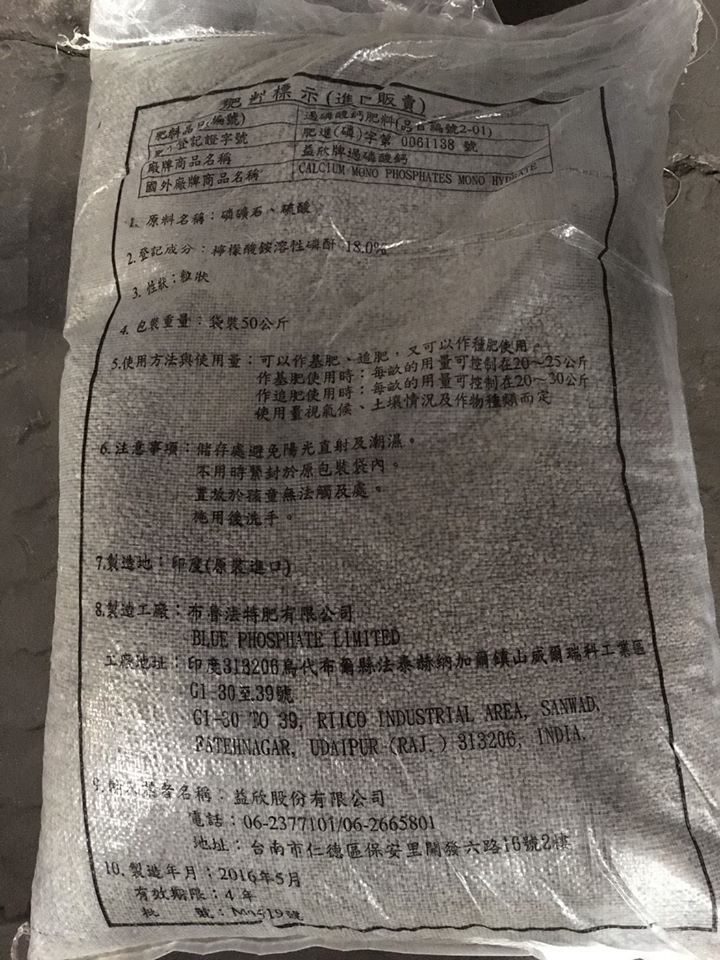 肥料標示(進口販賣)
肥料品目(編號) 過磷酸鈣肥料(品目編號2-01)
肥料登記證字號 肥進(磷)字第 0061138 號
廠牌商品名稱 益欣牌過磷酸鈣
國外廠牌商品名稱 CALCIUM MONO PHOSPHATES MONO HYDRATE
1. 原料名稱：磷礦石、硫酸
2. 登記成分：檸檬酸銨溶性磷酐 18.0%
3. 性狀：粒狀
4. 包裝重量：袋裝50公斤
5.使用方法與使用量：可以作基肥、追肥，又可以作種肥使用。
作基肥使用時：每畝的用量可控制在20～25公斤
作追肥使用時：每畝的用量可控制在20～30公斤
使用量視氣候、土壤情況及作物種類而定
6.注意事項：儲存處避免陽光直射及潮濕。
不用時緊封於原包裝袋內。
置放於孩童無法觸及處。
施用後洗手。
7.製造地：印度(原裝進口)
8.製造工廠：布魯法特肥有限公司
BLUE PHOSPHATE LIMITED
工廠地址：印度313206烏代布爾縣法泰赫納加爾鎮山威爾瑞科工業區
G1-30至39號
G1-30 TO 39, RIICO INDUSTRIAL AREA, SANWAD,
FATEHNAGAR, UDAIPUR (RAJ.) 313206, INDIA.
9. 輸入業者名稱：益欣股份有限公司
電話：06-2377101/06-2665801
地址：台南市仁德區保安里開發六路16號2樓
10. 製造年月：2016年5月
有效期限：4 年
批 號：